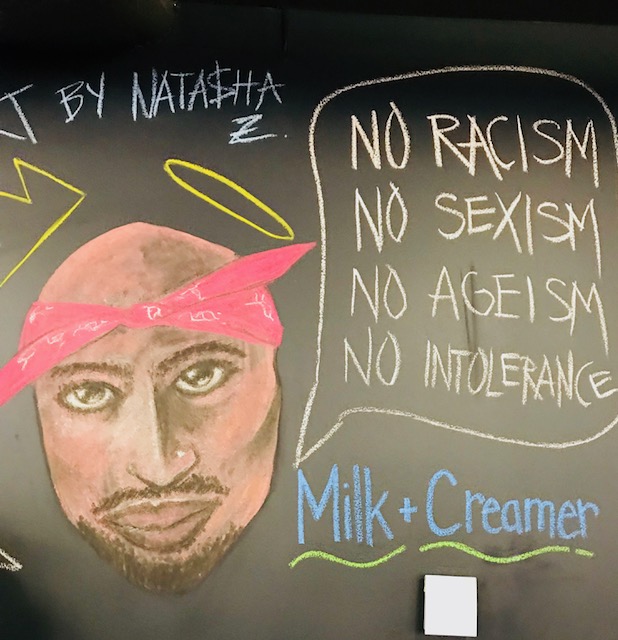 J BY NATA$HA
Z.
NO RACISM
NO SEXISM
NO AGEISM
NO INTOLERANCE
Milk + Creamer